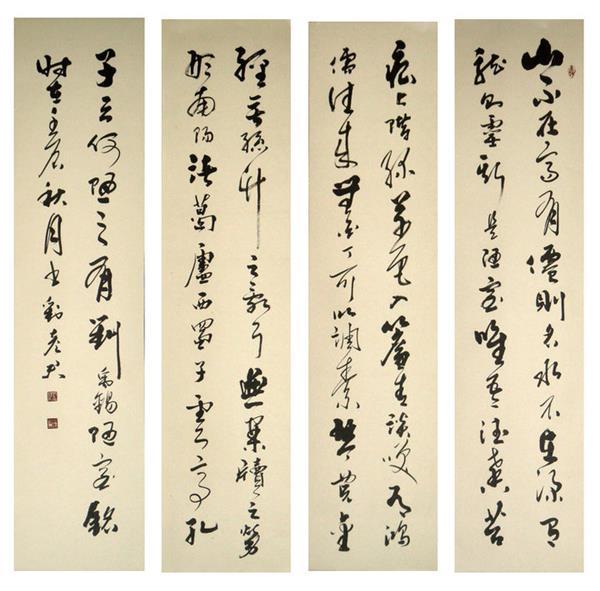 山不在高有僊則名水不在深有
龍則靈斯是陋室唯吾德馨苔
痕上階緑草色入簾青談唉有鴻
儒往来無白丁可以調素琴閱金
經無絲竹之亂耳無案牘之勞
形南陽諸葛廬西蜀子雲亭孔
子云何陋之有劉禹錫陋室銘
时在壬辰秋月书劉